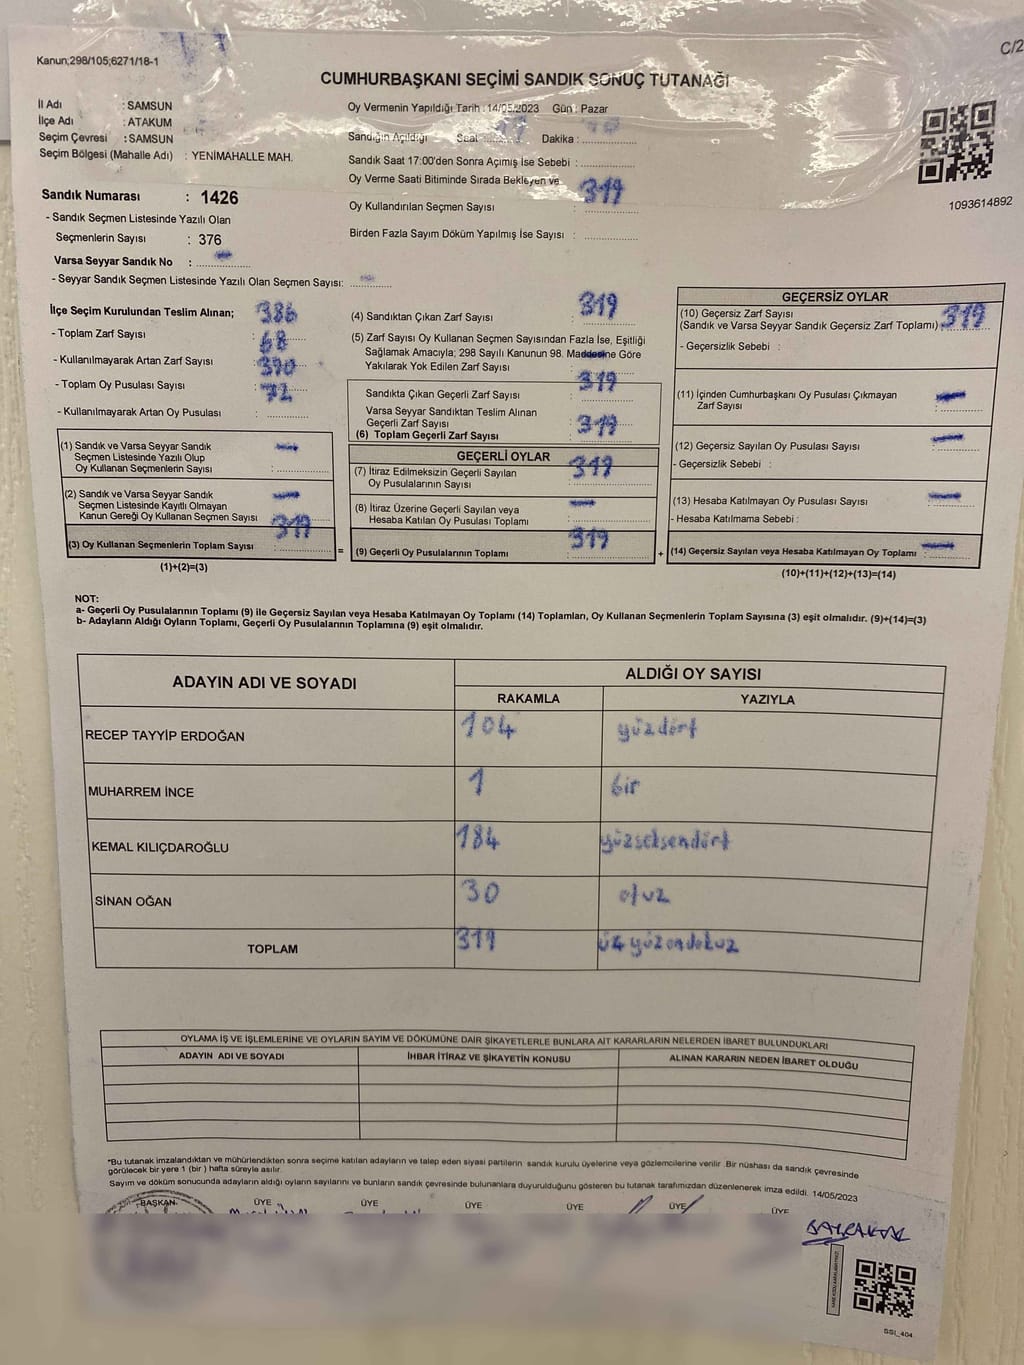 Kanun;298/105;6271/18-1
C/2
CUMHURBAŞKANI SEÇİMİ SANDIK SONUÇ TUTANAĞI
İl Adı : SAMSUN
İlçe Adı : ATAKUM
Seçim Çevresi : SAMSUN
Seçim Bölgesi (Mahalle Adı) : YENİMAHALLE MAH.
Oy Vermenin Yapıldığı Tarih : 14/05/2023 Gün : Pazar
Sandığın Açıldığı Saat Dakika :
Sandık Saat 17:00'den Sonra Açılmış İse Sebebi :
Oy Verme Saati Bitiminde Sırada Bekleyen ve
Oy Kullandırılan Seçmen Sayısı : 319
Birden Fazla Sayım Döküm Yapılmış İse Sayısı :
1093614892
Sandık Numarası : 1426
- Sandık Seçmen Listesinde Yazılı Olan
Seçmenlerin Sayısı : 376
Varsa Seyyar Sandık No : —
- Seyyar Sandık Seçmen Listesinde Yazılı Olan Seçmen Sayısı: —
İlçe Seçim Kurulundan Teslim Alınan; 386
- Toplam Zarf Sayısı 68
- Kullanılmayarak Artan Zarf Sayısı 390
- Toplam Oy Pusulası Sayısı 72
- Kullanılmayarak Artan Oy Pusulası :
(1) Sandık ve Varsa Seyyar Sandık
Seçmen Listesinde Yazılı Olup
Oy Kullanan Seçmenlerin Sayısı : —
(2) Sandık ve Varsa Seyyar Sandık
Seçmen Listesinde Kayıtlı Olmayan
Kanun Gereği Oy Kullanan Seçmen Sayısı —
(3) Oy Kullanan Seçmenlerin Toplam Sayısı : 319
=
(1)+(2)=(3)
(4) Sandıktan Çıkan Zarf Sayısı : 319
(5) Zarf Sayısı Oy Kullanan Seçmen Sayısından Fazla İse, Eşitliği
Sağlamak Amacıyla; 298 Sayılı Kanunun 98. Maddesine Göre
Yakılarak Yok Edilen Zarf Sayısı :
Sandıkta Çıkan Geçerli Zarf Sayısı : 319
Varsa Seyyar Sandıktan Teslim Alınan
Geçerli Zarf Sayısı :
(6) Toplam Geçerli Zarf Sayısı : 319
GEÇERLİ OYLAR
(7) İtiraz Edilmeksizin Geçerli Sayılan
Oy Pusulalarının Sayısı : 319
(8) İtiraz Üzerine Geçerli Sayılan veya
Hesaba Katılan Oy Pusulası Toplamı : —
(9) Geçerli Oy Pusulalarının Toplamı : 319
+
GEÇERSİZ OYLAR
(10) Geçersiz Zarf Sayısı
(Sandık ve Varsa Seyyar Sandık Geçersiz Zarf Toplamı) 319
- Geçersizlik Sebebi :
(11) İçinden Cumhurbaşkanı Oy Pusulası Çıkmayan
Zarf Sayısı : —
(12) Geçersiz Sayılan Oy Pusulası Sayısı : —
- Geçersizlik Sebebi :
(13) Hesaba Katılmayan Oy Pusulası Sayısı : —
- Hesaba Katılmama Sebebi :
(14) Geçersiz Sayılan veya Hesaba Katılmayan Oy Toplamı : —
(10)+(11)+(12)+(13)=(14)
NOT:
a- Geçerli Oy Pusulalarının Toplamı (9) ile Geçersiz Sayılan veya Hesaba Katılmayan Oy Toplamı (14) Toplamları, Oy Kullanan Seçmenlerin Toplam Sayısına (3) eşit olmalıdır. (9)+(14)=(3)
b- Adayların Aldığı Oyların Toplamı, Geçerli Oy Pusulalarının Toplamına (9) eşit olmalıdır.
ADAYIN ADI VE SOYADI ALDIĞI OY SAYISI
RAKAMLA YAZIYLA
RECEP TAYYİP ERDOĞAN 104 yüzdört
MUHARREM İNCE 1 bir
KEMAL KILIÇDAROĞLU 184 yüzseksendört
SİNAN OĞAN 30 otuz
TOPLAM 319 üç yüzondokuz
OYLAMA İŞ VE İŞLEMLERİNE VE OYLARIN SAYIM VE DÖKÜMÜNE DAİR ŞİKAYETLERLE BUNLARA AİT KARARLARIN NELERDEN İBARET BULUNDUKLARI
ADAYIN ADI VE SOYADI İHBAR İTİRAZ VE ŞİKAYETİN KONUSU ALINAN KARARIN NEDEN İBARET OLDUĞU
*Bu tutanak imzalandıktan ve mühürlendikten sonra seçime katılan adayların ve talep eden siyasi partilerin sandık kurulu üyelerine veya gözlemcilerine verilir. Bir nüshası da sandık çevresinde
görülecek bir yere 1 (bir) hafta süreyle asılır.
Sayım ve döküm sonucunda adayların aldığı oyların sayılarını ve bunların sandık çevresinde bulunanlara duyurulduğunu gösteren bu tutanak tarafımızdan düzenlenerek imza edildi. 14/05/2023
BAŞKAN ÜYE ÜYE ÜYE ÜYE ÜYE ÜYE
BAYRAKTAR
SSI_404